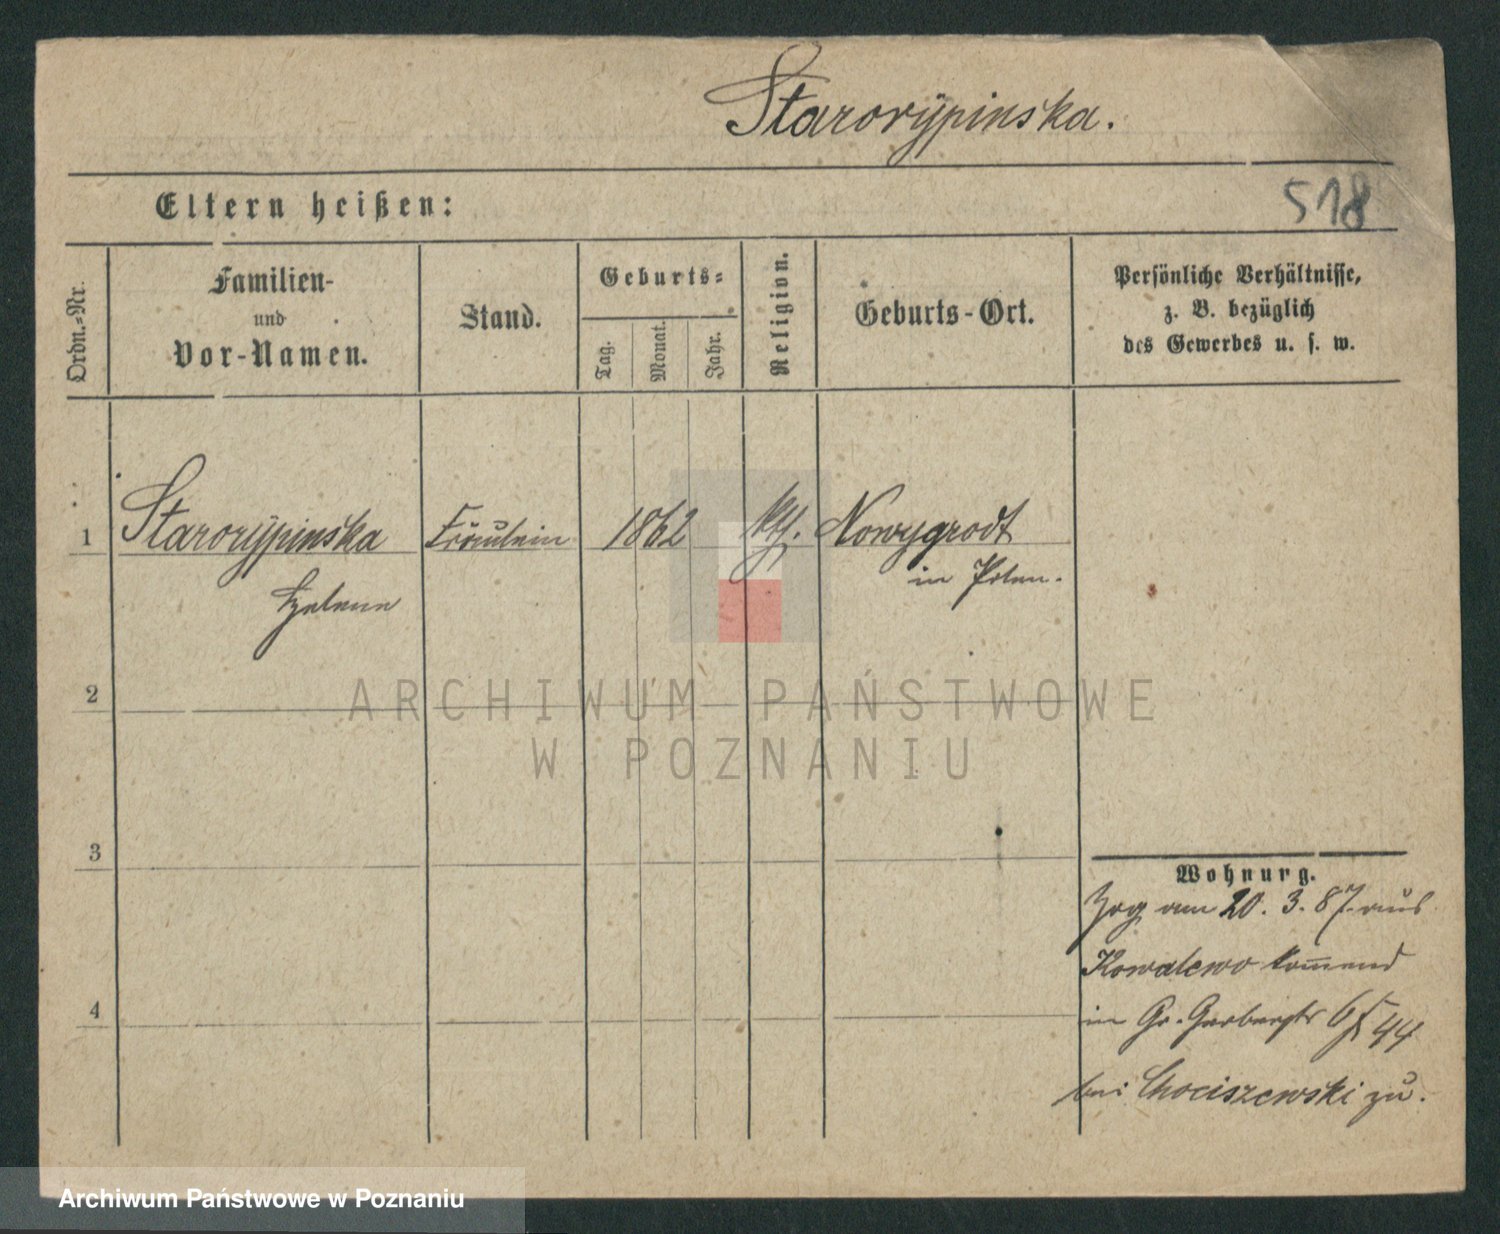 Starorypinska.
518
Eltern heißen:
Ordn.-Nr.
Familien-
und
Vor-Namen.
Stand.
Geburts-
Tag.
Monat.
Jahr.
Religion.
Geburts-Ort.
Persönliche Verhältnisse,
z. B. bezüglich
des Gewerbes u. s. w.
1 Starorypinska Fräulein 1862 kth. Nowygrodt
Helene in Polen.
2
ARCHIWUM PAŃSTWOWE
W POZNANIU
3
4
Wohnung.
Zog am 20. 3. 87. aus
Kowalewo komend
in Gr. Gerberstr 44
bei Chociszewski zu.
Archiwum Państwowe w Poznaniu